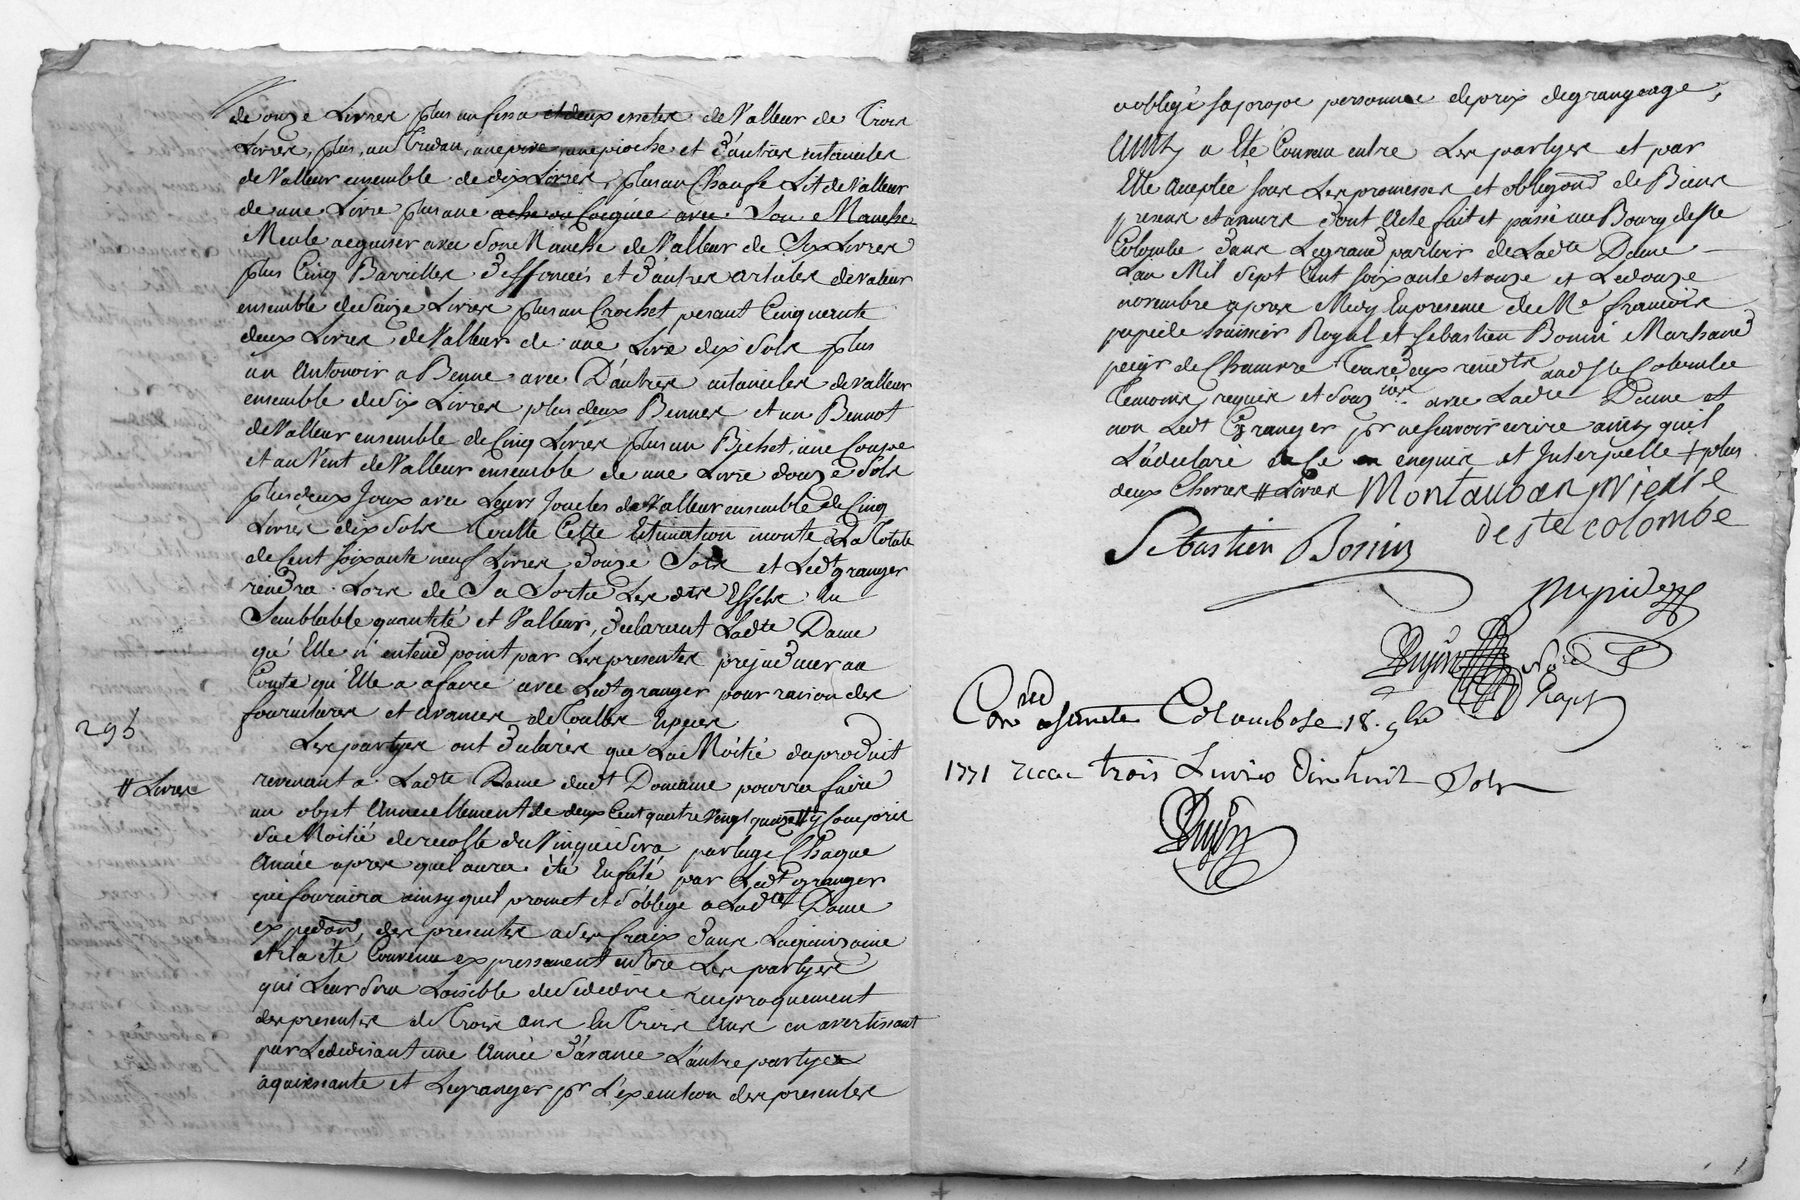 de onze Livres plus un fessou et deux de Valleur de Trois
Livres, plus, un Trident, une pive, une pioche et d'autres ustanciles
de Valleur ensemble de dix Livres, plus un Chaufe Lit de Valleur
de une Livre plus une ache ou Coignée avec Son Manche
Meule a eguiser avec Son Manche de Valleur de Six Livres
plus Cinq Barrilles deffoncées et d'autres articles de Valeur
ensemble de Seize Livres plus un Crochet pesant Cinquante
deux Livres de Valleur de une Livre dix Sols plus
un Antonoir a Benne avec D'autres ustanciles de Valleur
ensemble de Six Livres plus deux Bennes et un Bennot
de Valleur ensemble de Cinq Livres plus un Bichet, une Coupe
et un Vent de Valleur ensemble de une Livre douze Sols
plus deux Joux avec Leurs Joucles de Valleur ensemble de Cinq
Livres dix Sols Toutte Cette Estimation monte a La Totale
de Cent soixante neuf Livres douze Sols et Ledt granger
rendra Lors de Sa Sortie Les dts Effets en
Semblable quantité et Valleur, declarent Ladte Dame
qu'Elle n'entend point par Les presentes prejudicier au
Conte qu'Elle a a faire avec Ledt granger pour raison des
fournitures et avances de Touttes Especes
Les partyes ont declarés que La Moitié du produit
revenant a Ladte Dame dudt Domaine pourra faire
un objet Annuellement de deux Cent quatre Vingt quinze # y Compris
Sa Moitié de recolte du Vin qui Sera partagé Chaque
Année apres quil aura été Enfuté par Ledt granger
qui fournira ainsy quil promet et S'oblige a Ladte Dame
expedon des presentes a Ses fraix dans La quinzaine
et il a été Convenu expressement entre Les partyes
qui Leur Sera Loisible de Se dedire reciproquement
des presentes de Trois ans En Trois Ans en avertissant
par Le dedisant une Année d'avance L'autre partye
aquiessante et Legranger pr L'execution des presentes
295
# Livres
a obligé sa propre personne de prix de grangeage,
Ainsy a Eté Convenu entre Les partyes et par
Elle Aceptée sous Les promesses et obligaons de Biens
presens et avenirs dont Acte fait et passé au Bourg de Ste
Colombe dans Le grand parloir de Ladte Dame
L'an Mil Sept Cent soixante et onze et Le douze
novembre apres Midy En presence de Me francois
papide huissier Royal et Sebastien Bonin Marchand
peigr de Chanvre Tous deux residts audt Ste Colombe
Temoins requis et Souznés avec Ladte Dame et
non Ledt Granger pr ne scavoir ecrire ainsy quil
L'a declaré de Ce enquis et Interpellé + plus
deux Chevres # Livres Montauban prieure
de ste colombe
Sebastien Bonin
papide
Dujon
Contrôlé a Sainte Colombe le 18. 9bre
1771 recu trois Livres dix huit Sols
Dujon